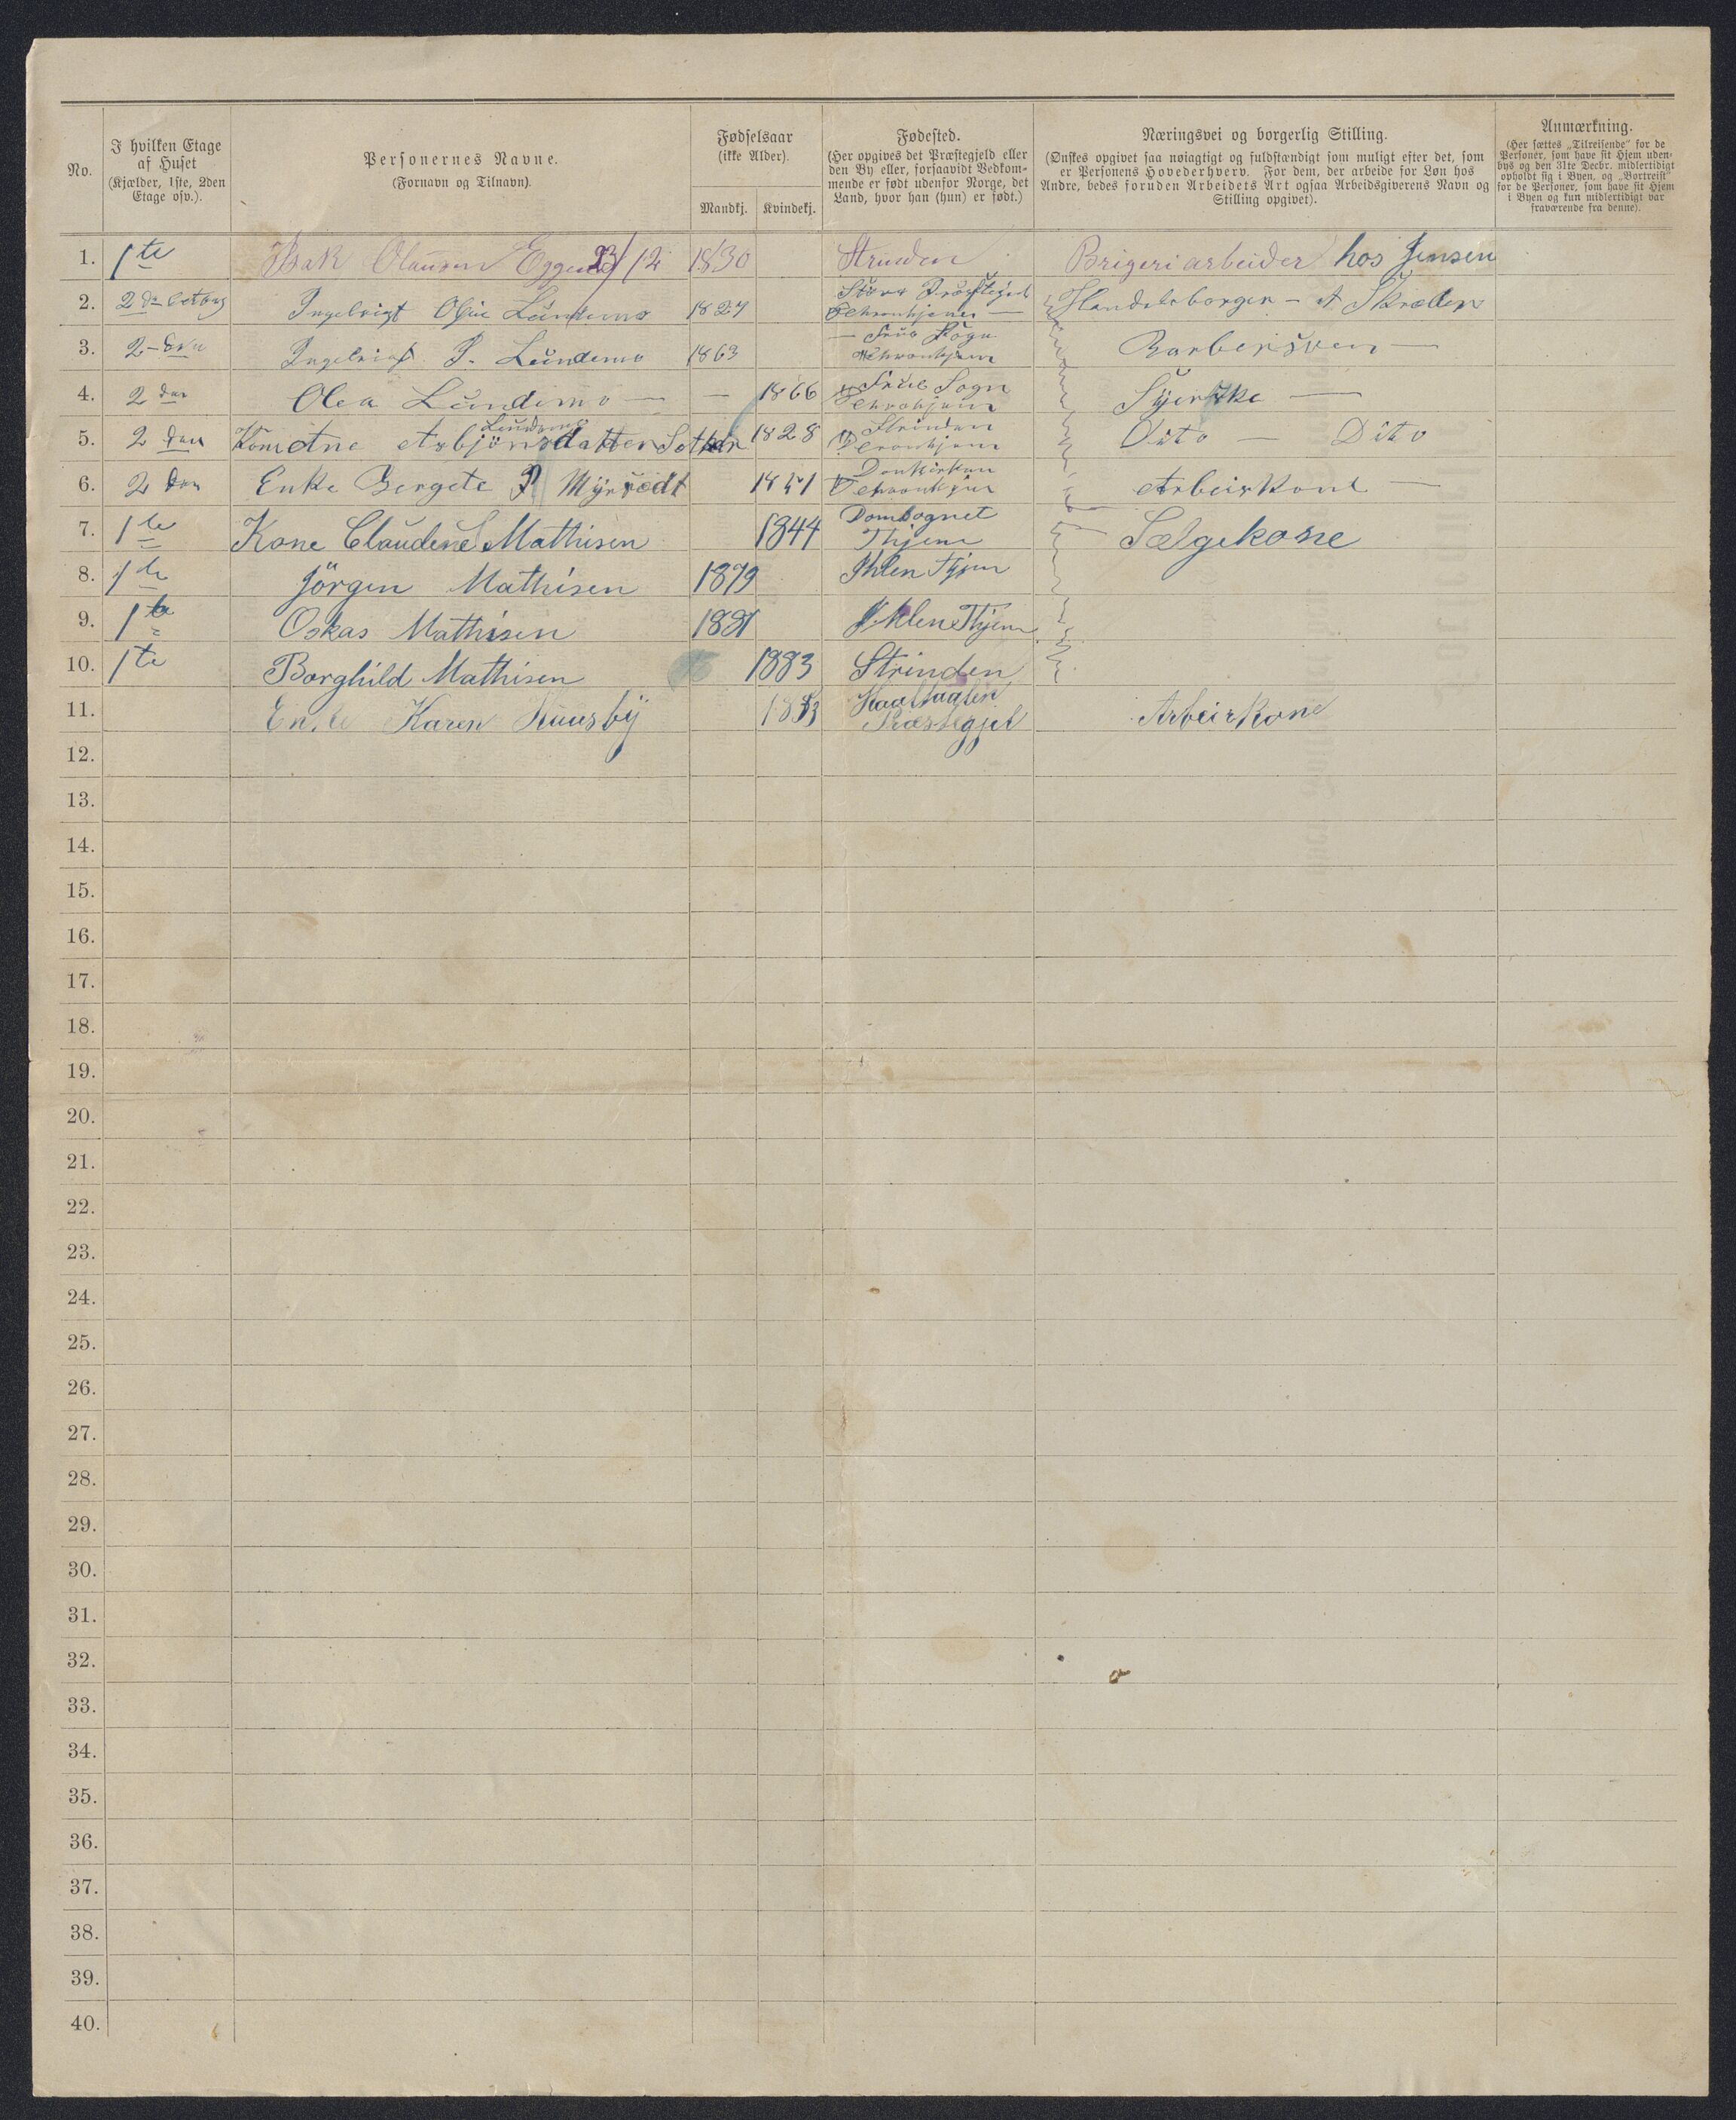 No.
I hvilken Etage
af Huset
(Kjælder, 1ste, 2den
Etage osv.).
Personernes Navne.
(Fornavn og Tilnavn).
Fødselsaar
(ikke Alder).
Mandkj. Kvindekj.
Fødested.
(Her opgives det Præstegjeld eller
den By eller, forsaavidt Vedkom-
mende er født udenfor Norge, det
Land, hvor han (hun) er født.)
Næringsvei og borgerlig Stilling.
(Ønskes opgivet saa nøiagtigt og fuldstændigt som muligt efter det, som
er Personens Hovederhverv. For dem, der arbeide for Løn hos
Andre, bedes foruden Arbeidets Art ogsaa Arbeidsgiverens Navn og
Stilling opgivet).
Anmærkning.
(Her sættes „Tilreisende" for de
Personer, som have sit Hjem uden-
bys og den 31te Decbr. midlertidigt
opholdt sig i Byen, og „Bortreist"
for de Personer, som have sit Hjem
i Byen og kun midlertidigt var
fraværende fra denne).
1. 1te Isak Olausen 23/12 1830 Strinden Brigeri arbeider hos Jensen
2. 2 Lundemo 1827 Handelsborger - Skræder
3. 2 P. Lundemo 1863 Frue Sogn Barbersven
4. 2 den Olea Lundemo 1866 Frue Sogn Syerske
5. 2 den Lundemo
Kone Ane Asbjörnsdatter 1828 Strinden Dito - Dito
6. 2 den Enke Bergete P Domkirken Arbeiskone
7. 1te Kone Claudene Mathisen 1844 Domsognet
Thjem Sælgekone
8. 1te Jörgen Mathisen 1879 Ihlen Thjem
9. 1te Oskas Mathisen Ihlen Thjem
10. 1te Borghild Mathisen 1883 Strinden
11. Enke Karen Huusby Præstegjel Arbeiskone
12.
13.
14.
15.
16.
17.
18.
19.
20.
21.
22.
23.
24.
25.
26.
27.
28.
29.
30.
31.
32.
33.
34.
35.
36.
37.
38.
39.
40.